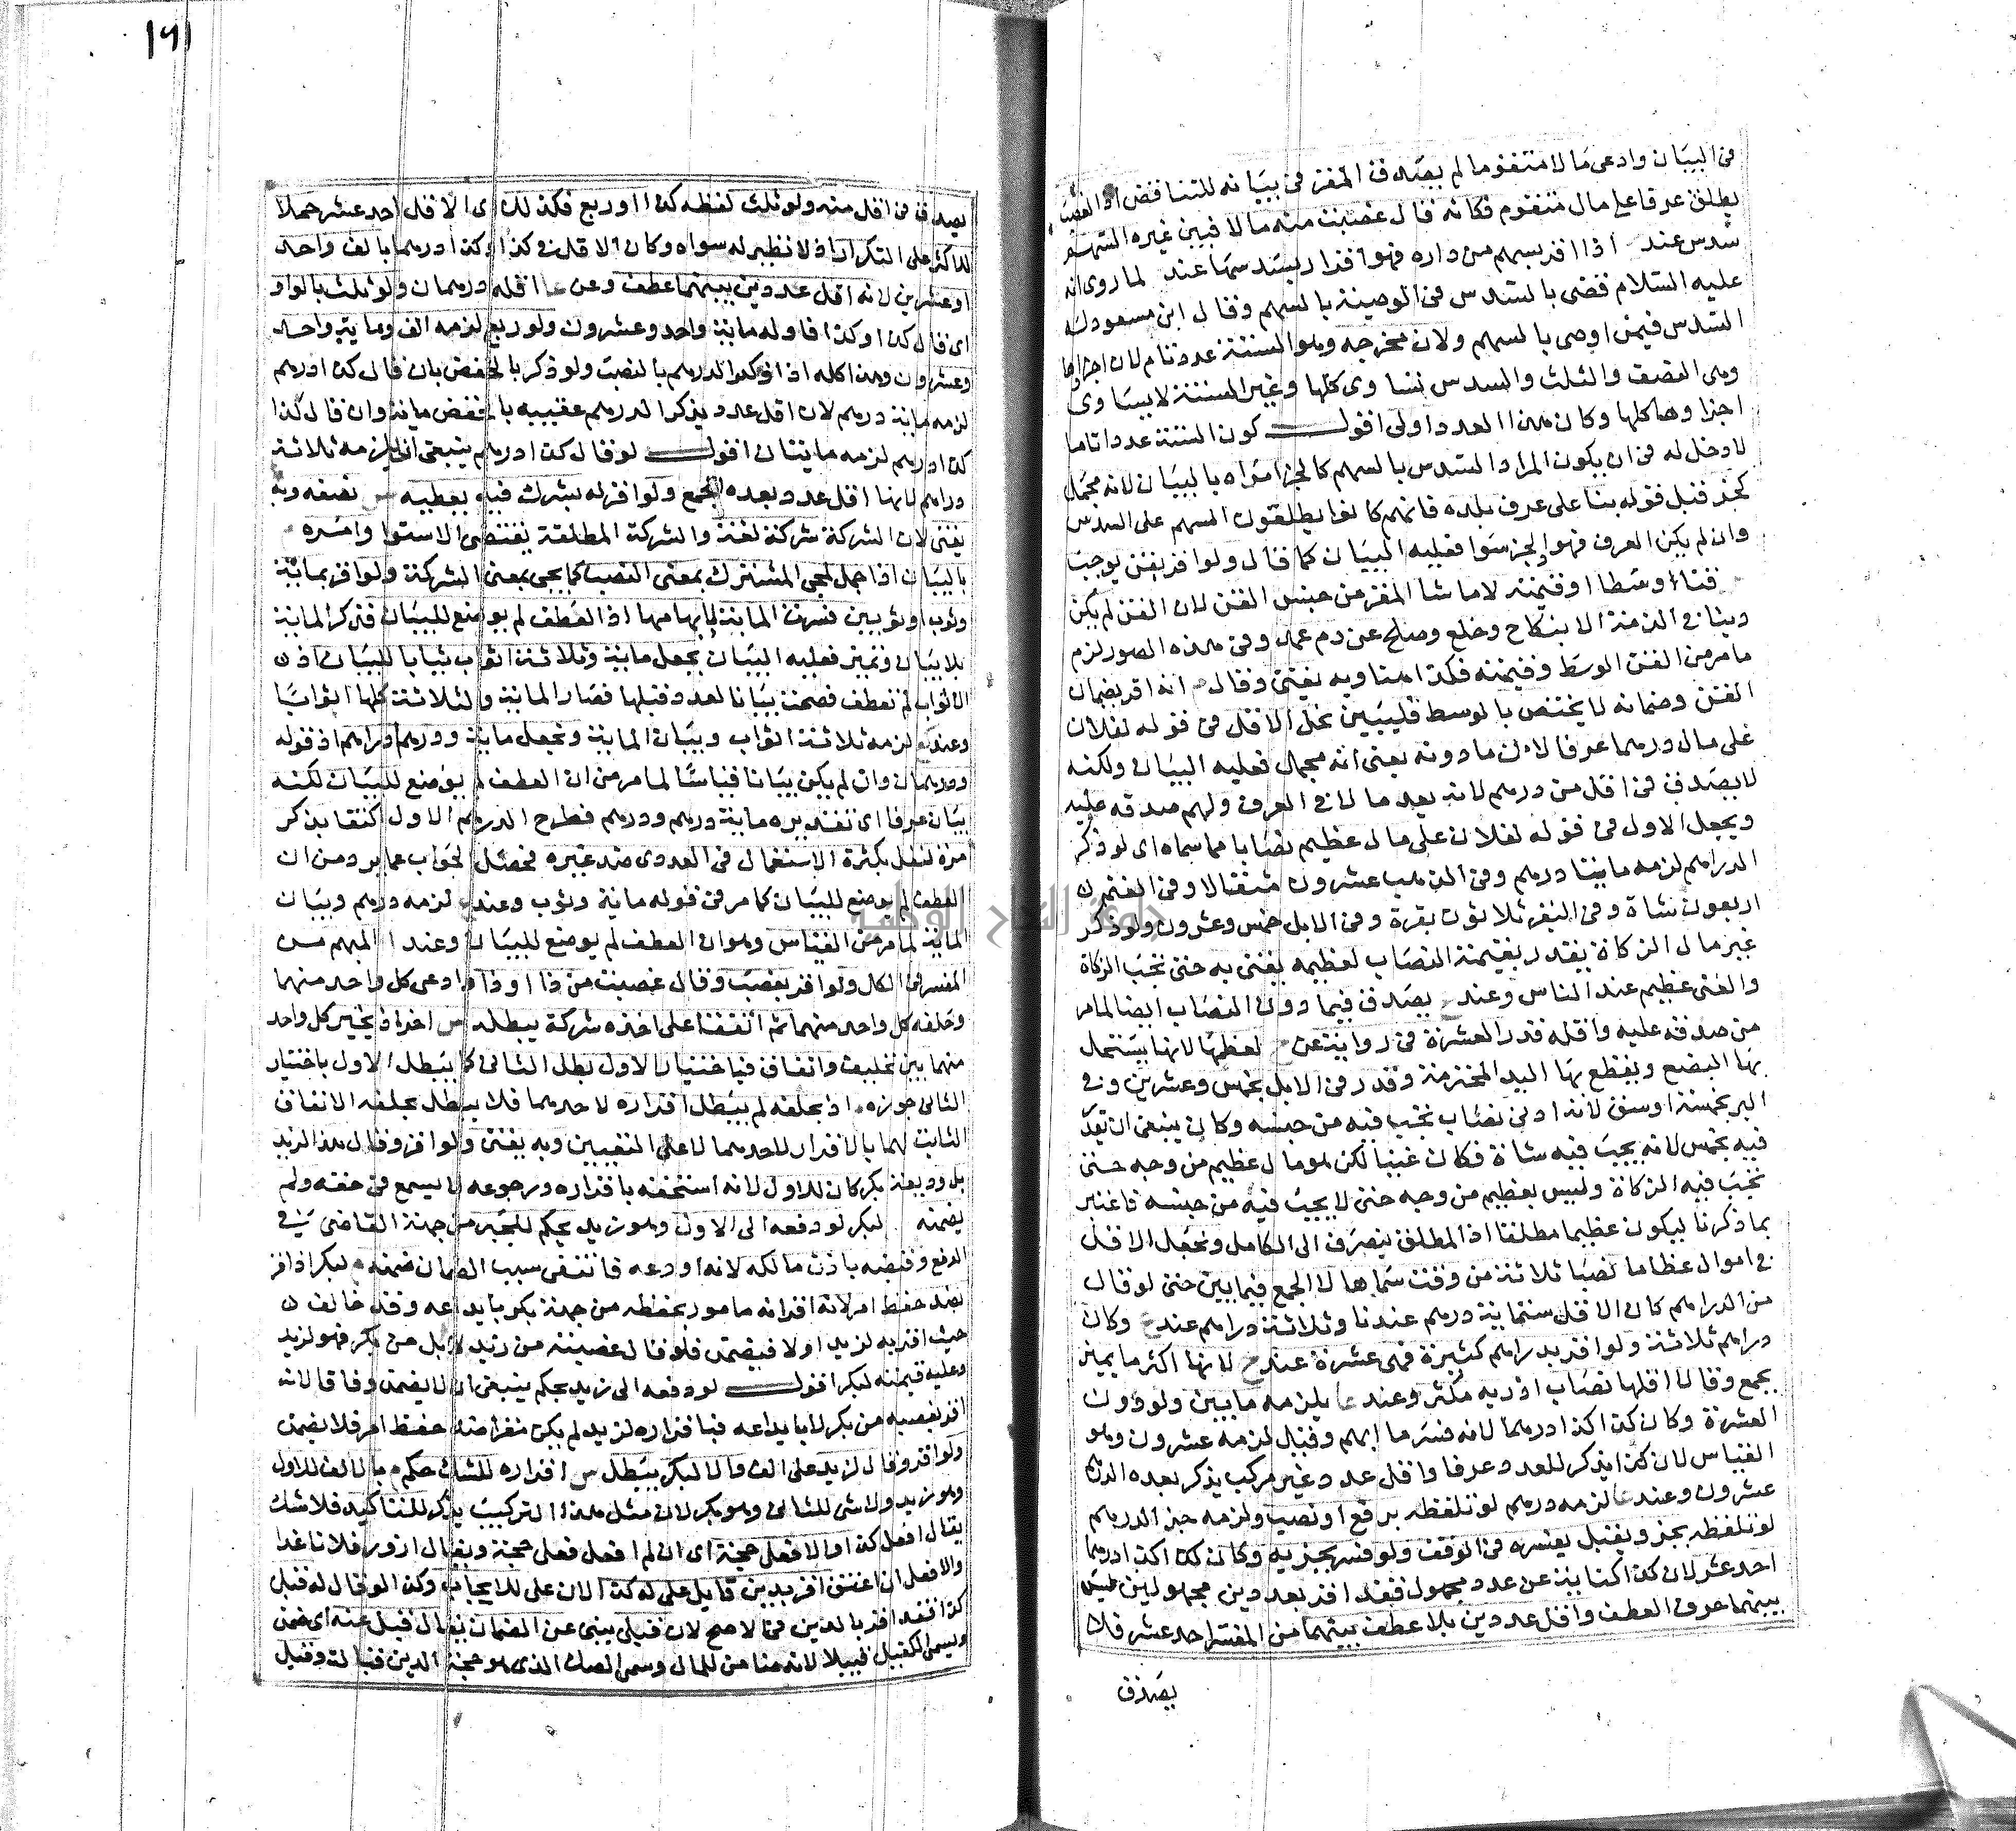 في البيان وادعى مالا متقوما لم يصدق المقر في بيانه للتناقض اذ الغصب
يطلق عرفا على مال متقوم فكانه قال غصبت منه مالا فبين غيره السهم
سدس عند اذا اقر بسهم من داره فهو اقرار بسدسها عند لما روى انه
عليه السلام قضى بالسدس في الوصية بالسهم وقال ابن مسعود له
السدس فيمن اوصى بالسهم ولان مخرجه وهو الستة عدد تام لان اجزاوها
وهى النصف والثلث والسدس تساوى كلها وغير الستة لا يساوى
اجزاوها كلها وكان هذا العدد اولى اقول كون الستة عددا تاما
لا دخل له في ان يكون المراد السدس بالسهم كالجز امراه بالبيان لانه مجمل
كجز قيل قوله بنا على عرف بلده فانهم كانوا يطلقون السهم على السدس
وان لم يكن العرف فهو والجز سوا فعليه البيان كما قال ولو اقر بقن يوجب
قنا وسطا او قيمته لا ما شا المقر من جنس القن لان القن لم يكن
دينا في الذمة الا بنكاح وخلع وصلح عن دم عمد وفي هذه الصور لزم
ما مر من القن الوسط وقيمته فكذا هنا وبه يفتى وقال انه اقر بضمان
القن وضمانه لا يختص بالوسط فليبين نحمل الاقل في قوله لفلان
على مال درهما عرفا لا من ما دونه يعنى انه مجمل فعليه البيان ولكنه
لا يصدق في اقل من درهم لانه يعد مالا في العرف ولهم صدقه عليه
ويجعل الاول في قوله لفلان على مال عظيم نصابا مما سماه اى لو ذكر
الدراهم لزمه مايتا درهم وفي الذهب عشرون مثقالا وفي الغنم
اربعون شاة وفي البقر ثلاثون بقرة وفي الابل خمس وعشرون ولو ذكر
غير مال الزكاة يقدر بقيمته النصاب لعظيمه يغنى به حتى تجب الزكاة
والغنى عظيم عند الناس وعند يصدق فيما دون النصاب ايضا لما مر
من صدقه عليه واقله قدر العشرة في رواية عن لعظمها لانها يستحل
بها البضع ويقطع بها اليد المحترمة وقدر في الابل بخمس وعشرين وفي
البر بخمسة اوسق لانه ادنى نصاب تجب فيه من جنسه وكان ينبغى ان يقدر
فيه بخمس لانه يجب فيه شاة فكان غنيا لكن هو مال عظيم من وجه حتى
تجب فيه الزكاة وليس بعظيم من وجه حتى لا يجب فيه من جنسه فاعتبر
بما ذكرنا ليكون عظيما مطلقا اذ المطلق ينصرف الى الكامل ونحمل الاقل
في اموال عظاما نصبا ثلاثة من وقت سماها لا الجمع فيما بين حتى لو قال
من الدراهم كان الاقل ستماية درهم عندنا وثلاثة دراهم عند وكان
دراهم ثلاثة ولو اقر بدراهم كثيرة فهى عشرة عند لانها اكثر ما يميز
بجمع وقالا اقلها نصاب اذ ربه مكثر وعند يلزمه مايتين ولو دون
العشرة وكان كذا كذا درهما لانه فسر ما ابهم وقيل لزمه عشرون وهو
القياس لان كذا يذكر للعدد عرفا واقل عدد غير مركب يذكر بعده الدرهم
عشرون وعند لزمه درهم لو تلفظه برفع او نصب ولزمه جز الدرهم
لو تلفظه بجز ويقبل يفسره في الوقف ولو فسر بجز به وكان كذا كذا درهما
احد عشر لان كذا كناية عن عدد مجهول فقد اقر بعددين مجهولين ليس
بينهما حرف العطف واقل عددين بلا عطف بينهما من المفسر احد عشر فلا
يصدق
١٦١
يصدق في اقل منه ولو ثلث لفظه كذا او ربع فكذلك اى الاقل احد عشر حملا
للاكثر على التكرار اذ لا نظير له سواه وكان الاقل في كذا وكذا درهما بالف واحد
او عشرين لانه اقل عددين بينهما عطف وعن اقله درهمان ولو ثلث بالواو
اى قال كذا وكذا فاوله ماية واحد وعشرون ولو ربع لزمه الف وماية واحد
وعشرون وهذا كله اذا ذكر الدرهم بالنصب ولو ذكر بالخفض بان قال كذا درهم
لزمه ماية درهم لان اقل عدد يذكر الدرهم عقيبه بالخفض ماية وان قال كذا
كذا درهم لزمه مايتان اقول لو قال كذا درهم ينبغى ان يلزمه ثلاثة
دراهم لانها اقل عدد بعده الجمع ولو اقر له بشرك فيه يعطيه نصفه وبه
يفتى لان الشركة شركة لغة والشركة المطلقة يقتضى الاستوا وامره
بالبيان اذا اجمل لمجى المشترك بمعنى النصيب كما يجى بمعنى الشركة ولو اقر بماية
وثوب او ثوبين فسرت الماية لابهامها اذ العطف لم يوضع للبيان فذكر الماية
بلا بيان وتميز فعليه البيان يجعل ماية وثلاثة اثواب ثيابا للبيان اذ
الاثواب لم تعطف فصحت بيانا لعدد قبلها فصار الماية والثلاثة كلها اثوابا
وعند لزمه ثلاثة اثواب وبيان الماية وتجعل ماية ودرهم دراهم اذ قوله
ودرهمان وان لم يكن بيانا قياسا لما مر من ان العطف لم يوضع للبيان لكنه
بيان عرفا اى تقديره ماية درهم ودرهم فطرح الدرهم الاول كتفا بذكر
مرة لثقل بكثرة الاستعمال في العددى ضد غيره فحصل الجواب عما يرد من ان
العطف لم يوضع للبيان كما مر في قوله ماية وثوب وعند لزمه درهم وبيان
الماية لما مر من القياس وهو ان العطف لم يوضع للبيان وعند المبهم من
المفسر في الكل ولو اقر بغصب وقال غصبت من ذا او ذا وادعى كل واحد منهما
وحلفه كل واحد منهما ثم اتفقا على اخذه شركة يبطله اخرا ذ يخير كل واحد
منهما بين تحليف واتفاق فباختيار الاول بطل الثانى كما يبطل الاول باختيار
الثانى جوزه اذ بحلفه لم يبطل اقراره لاحدهما فلا يبطل بحلفه الاتفاق
الثابت لهما بالاقرار لاحدهما لا على التعيين وبه يفتى ولو اقر وقال هذا لزيد
بل وديعة بكر كان للاول لانه استحقه باقراره ورجوعه لا يسمع في حقه ولم
يضمنه لبكر لو دفعه الى الاول وهو زيد بحكم للجبر من جهة القاضى في
الدفع وقبضه باذن مالكه لانه اودعه فانتفى سبب الضمان ضمنه لبكر اذ اقر
بضد حفظ امر لانه اقر انه مامور بحفظه من جهة بكر بايداعه وقد خالف
حيث اقر به لزيد اولا فيضمن فلو قال غصبته من زيد لا بل من بكر فهو لزيد
وعليه قيمته لبكر اقول لو دفعه الى زيد بحكم ينبغى ان لا يضمن وفاقا لانه
اقر بغصبه من بكر لا بايداعه فباقراره لزيد لم يكن مقرا ضد حفظ امر فلا يضمن
ولو اقر وقال لزيد على الف والا لبكر يبطل اقراره للشك حكم بالالف للاول
وهو زيد ولا شى للثانى وهو بكر لان مثل هذا التركيب يذكر للتاكيد فلا شك
يقال افعل كذا والا فعلى حجة اى ان لم افعل فعلى حجة ويقال ازور فلانا غدا
والا فعلى ان اعتق اقر بدين قايل على له كذا لان على للايجاب وكذا لو قال له قبلى
كذا فقد اقر بالدين في الاصح لان قبلى ينبى عن الضمان يقال قبل عنه اى ضمن
ويسمى الكفيل قبيلا لانه ضامن للمال وسمى الصك الذى هو حجة الدين قبالة وقيل